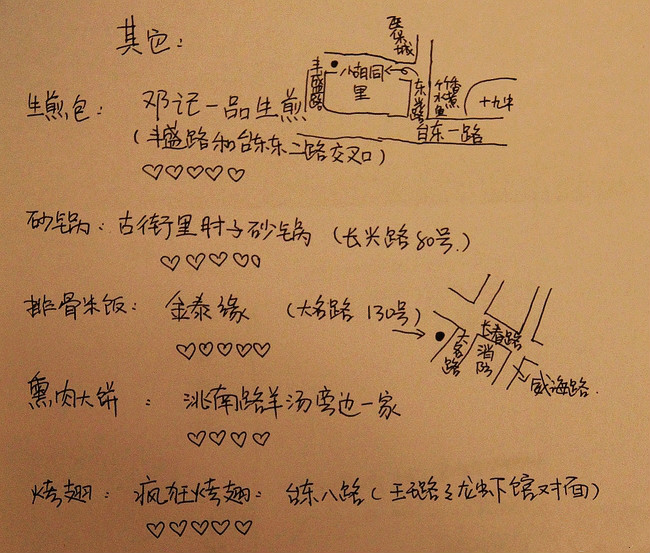 其它：
医保城
丰盛路
小胡同里
东光路
竹香水煮鱼
十九中
台东一路
生煎包： 邓记一品生煎
(丰盛路和台东东二路交叉口)
♡♡♡♡♡
砂锅：古街里肘子砂锅 (长兴路80号.)
♡♡♡♡
排骨米饭： 金泰缘 (大名路130号)
♡♡♡♡♡
长春路
大名路
消防
威海路.
熏肉大饼： 洮南路羊汤旁边一家
♡♡♡♡
烤翅： 疯狂烤翅： 台东八路(王子路之龙虾馆对面)
♡♡♡♡♡